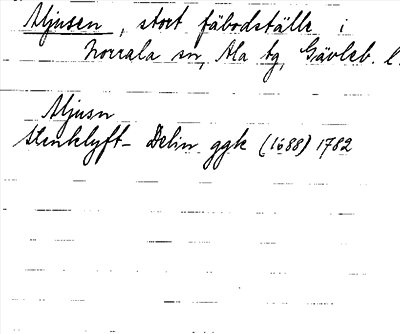 Mjusen, stort fäbodställe i
Norrala sn, Ala tg, Gävleb. l.
Mjusn
Stenklyft- Delin ggk (1688) 1782